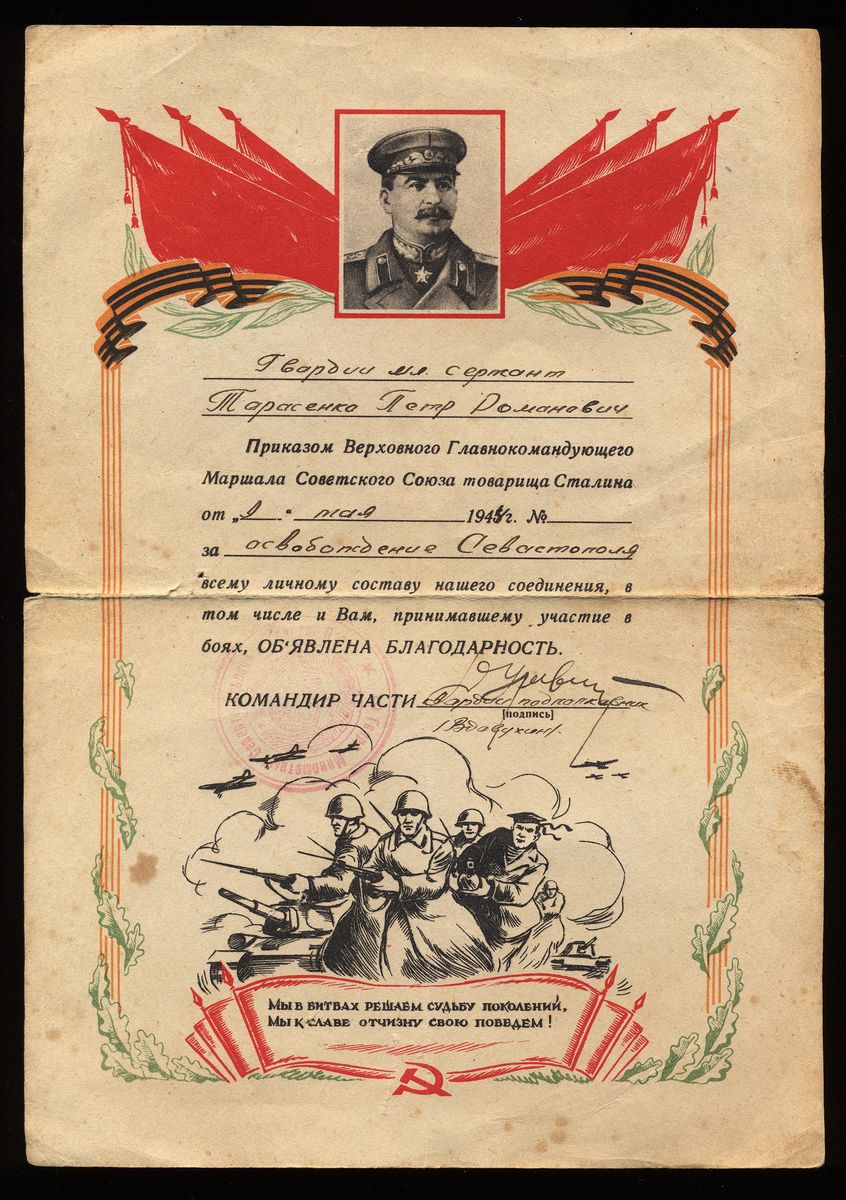 Гвардии мл. сержант
Тарасенко Петр Романович
Приказом Верховного Главнокомандующего
Маршала Советского Союза товарища Сталина
от „9“ мая 1944г. №
за освобождение Севастополя
всему личному составу нашего соединения, в
том числе и Вам, принимавшему участие в
боях, ОБ'ЯВЛЕНА БЛАГОДАРНОСТЬ.
КОМАНДИР ЧАСТИ Гвардии подполковник
[подпись]
Мы в битвах решаем судьбу поколений,
Мы к славе отчизну свою поведем!